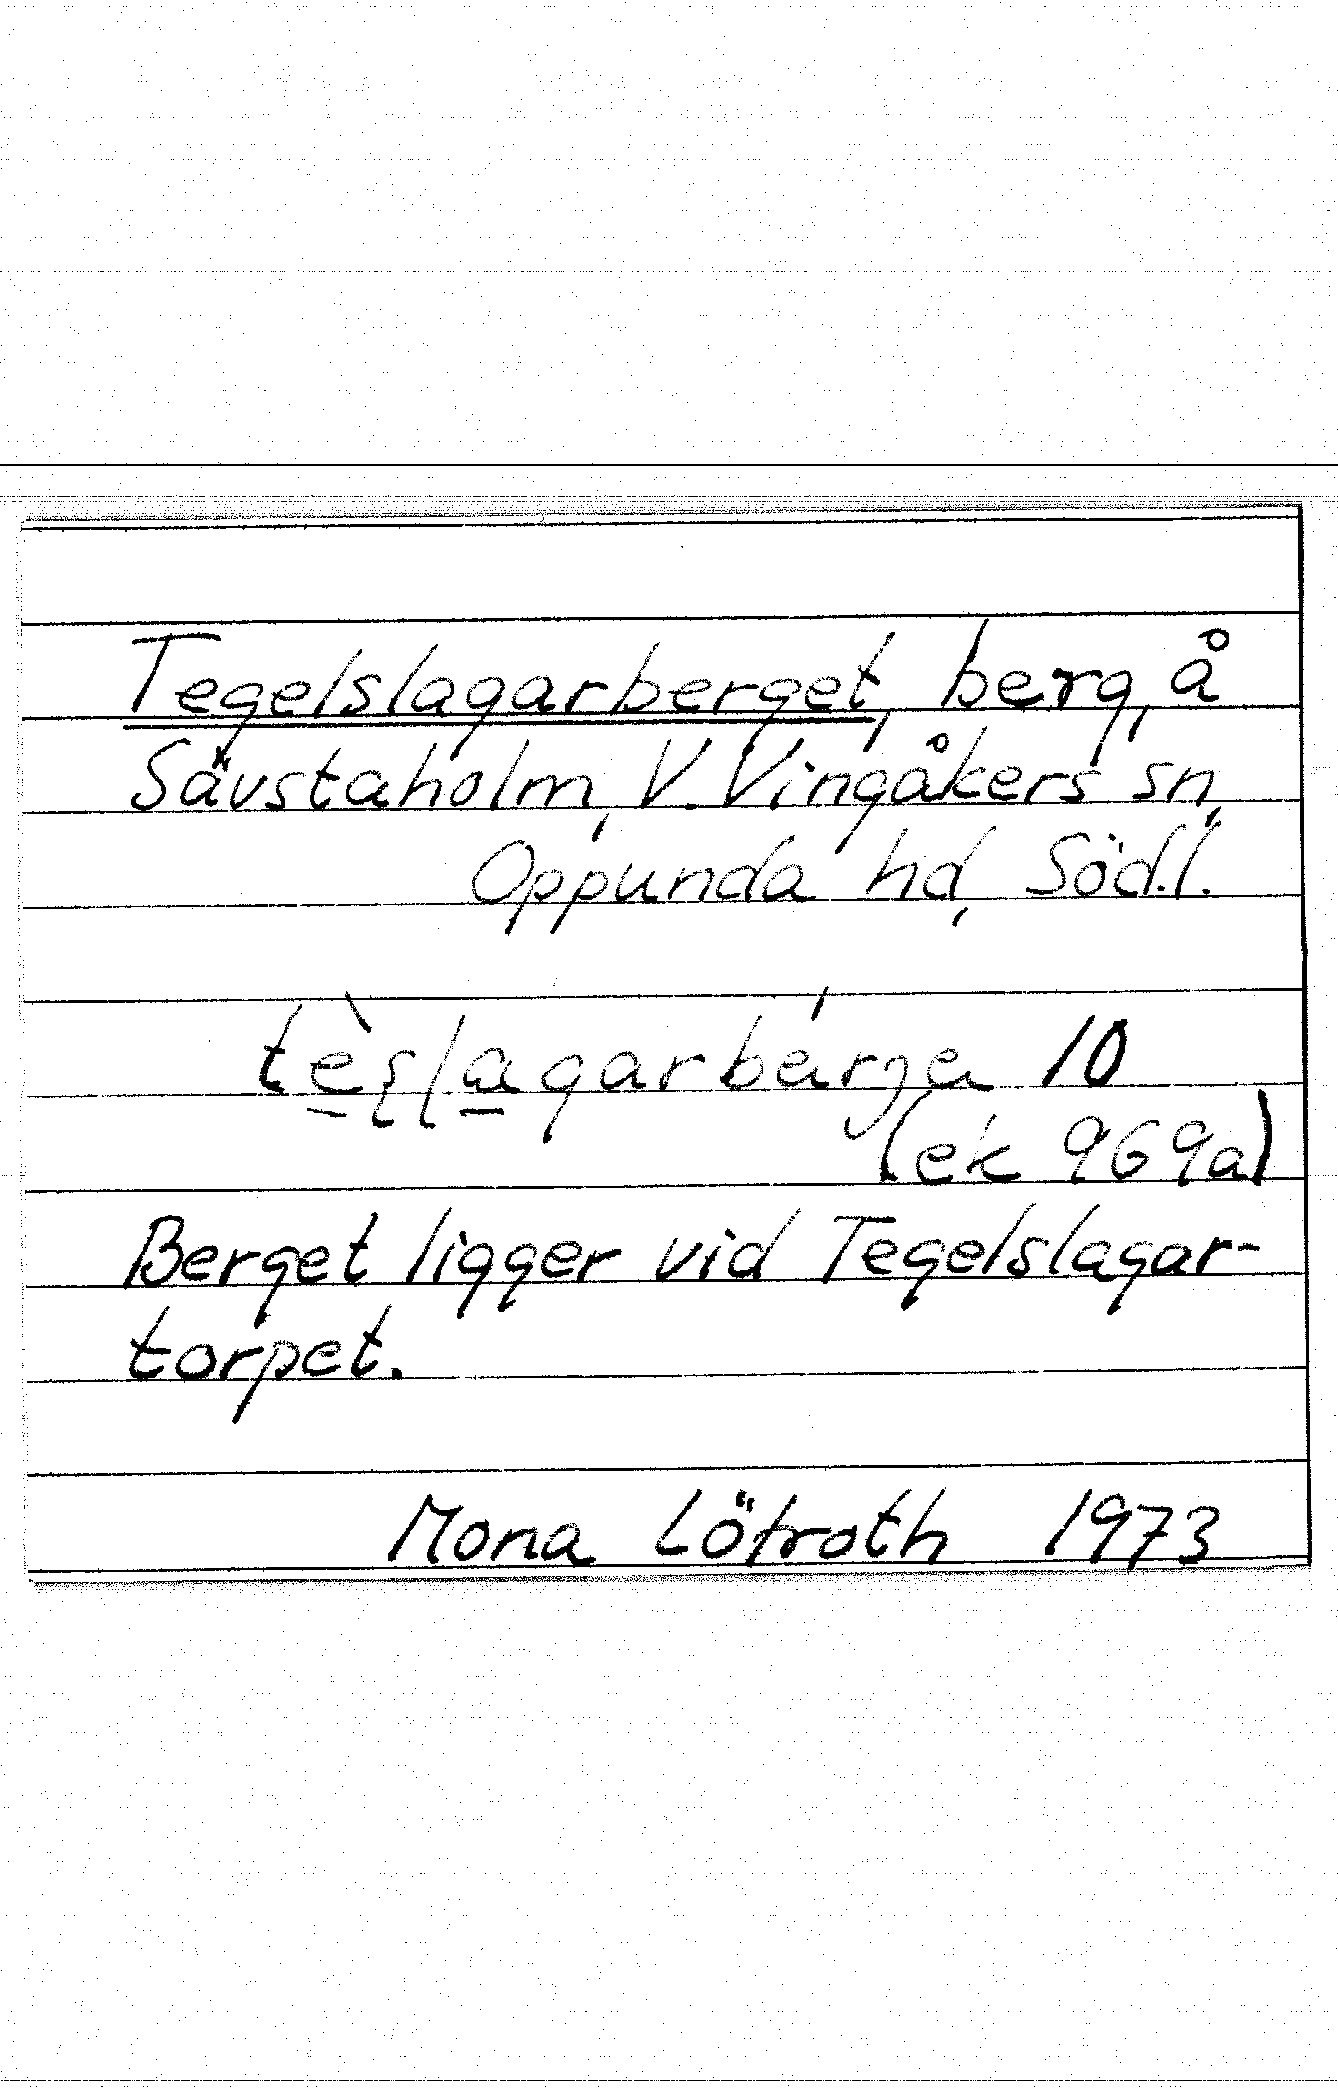 Tegelslagarberget, berg, å
Sävstaholm, V. Vingåkers sn,
Oppunda hd, Södl.
tèşlagarbárʒa 10
(ek 969a)
Berget ligger vid Tegelslagar-
torpet.
Mona Lötroth 1973